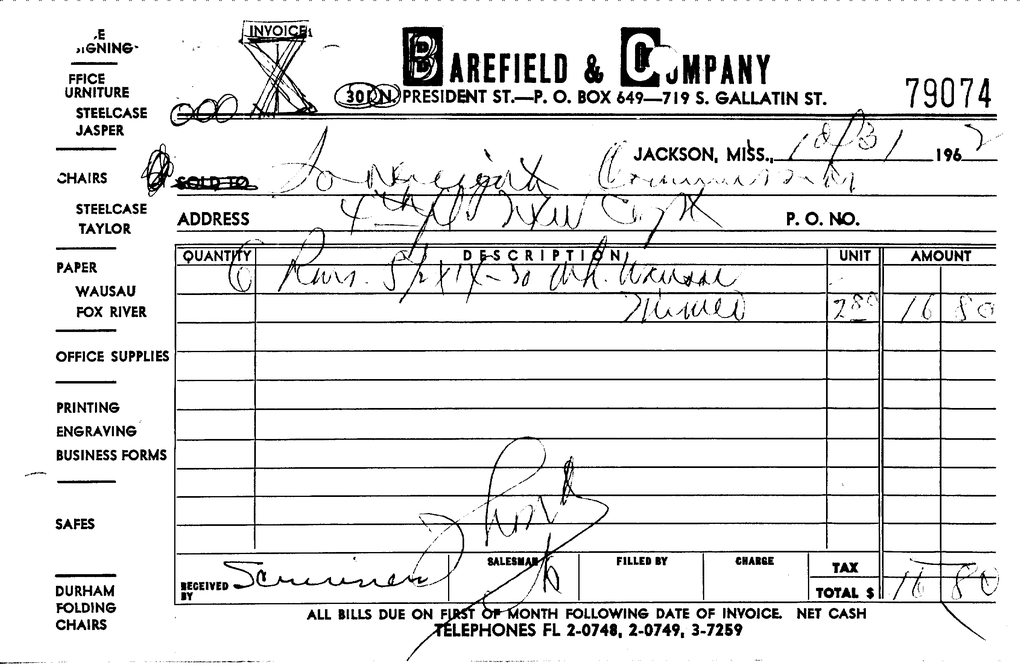 INVOICE
BAREFIELD & COMPANY
301 N. PRESIDENT ST.—P. O. BOX 649—719 S. GALLATIN ST.
79074
JACKSON, MISS., 10/31 1962
SOLD TO Sovereignty Commission
ADDRESS
P. O. NO.
QUANTITY DESCRIPTION UNIT AMOUNT
6 Rms. 8½ x 14-20 Wh. Wausau
Mimeo 2 80 16 80
RECEIVED BY
SALESMAN
FILLED BY
CHARGE
TAX
TOTAL $ 16 80
ALL BILLS DUE ON FIRST OF MONTH FOLLOWING DATE OF INVOICE. NET CASH
TELEPHONES FL 2-0748, 2-0749, 3-7259
FFICE
URNITURE
STEELCASE
JASPER
CHAIRS
STEELCASE
TAYLOR
PAPER
WAUSAU
FOX RIVER
OFFICE SUPPLIES
PRINTING
ENGRAVING
BUSINESS FORMS
SAFES
DURHAM
FOLDING
CHAIRS